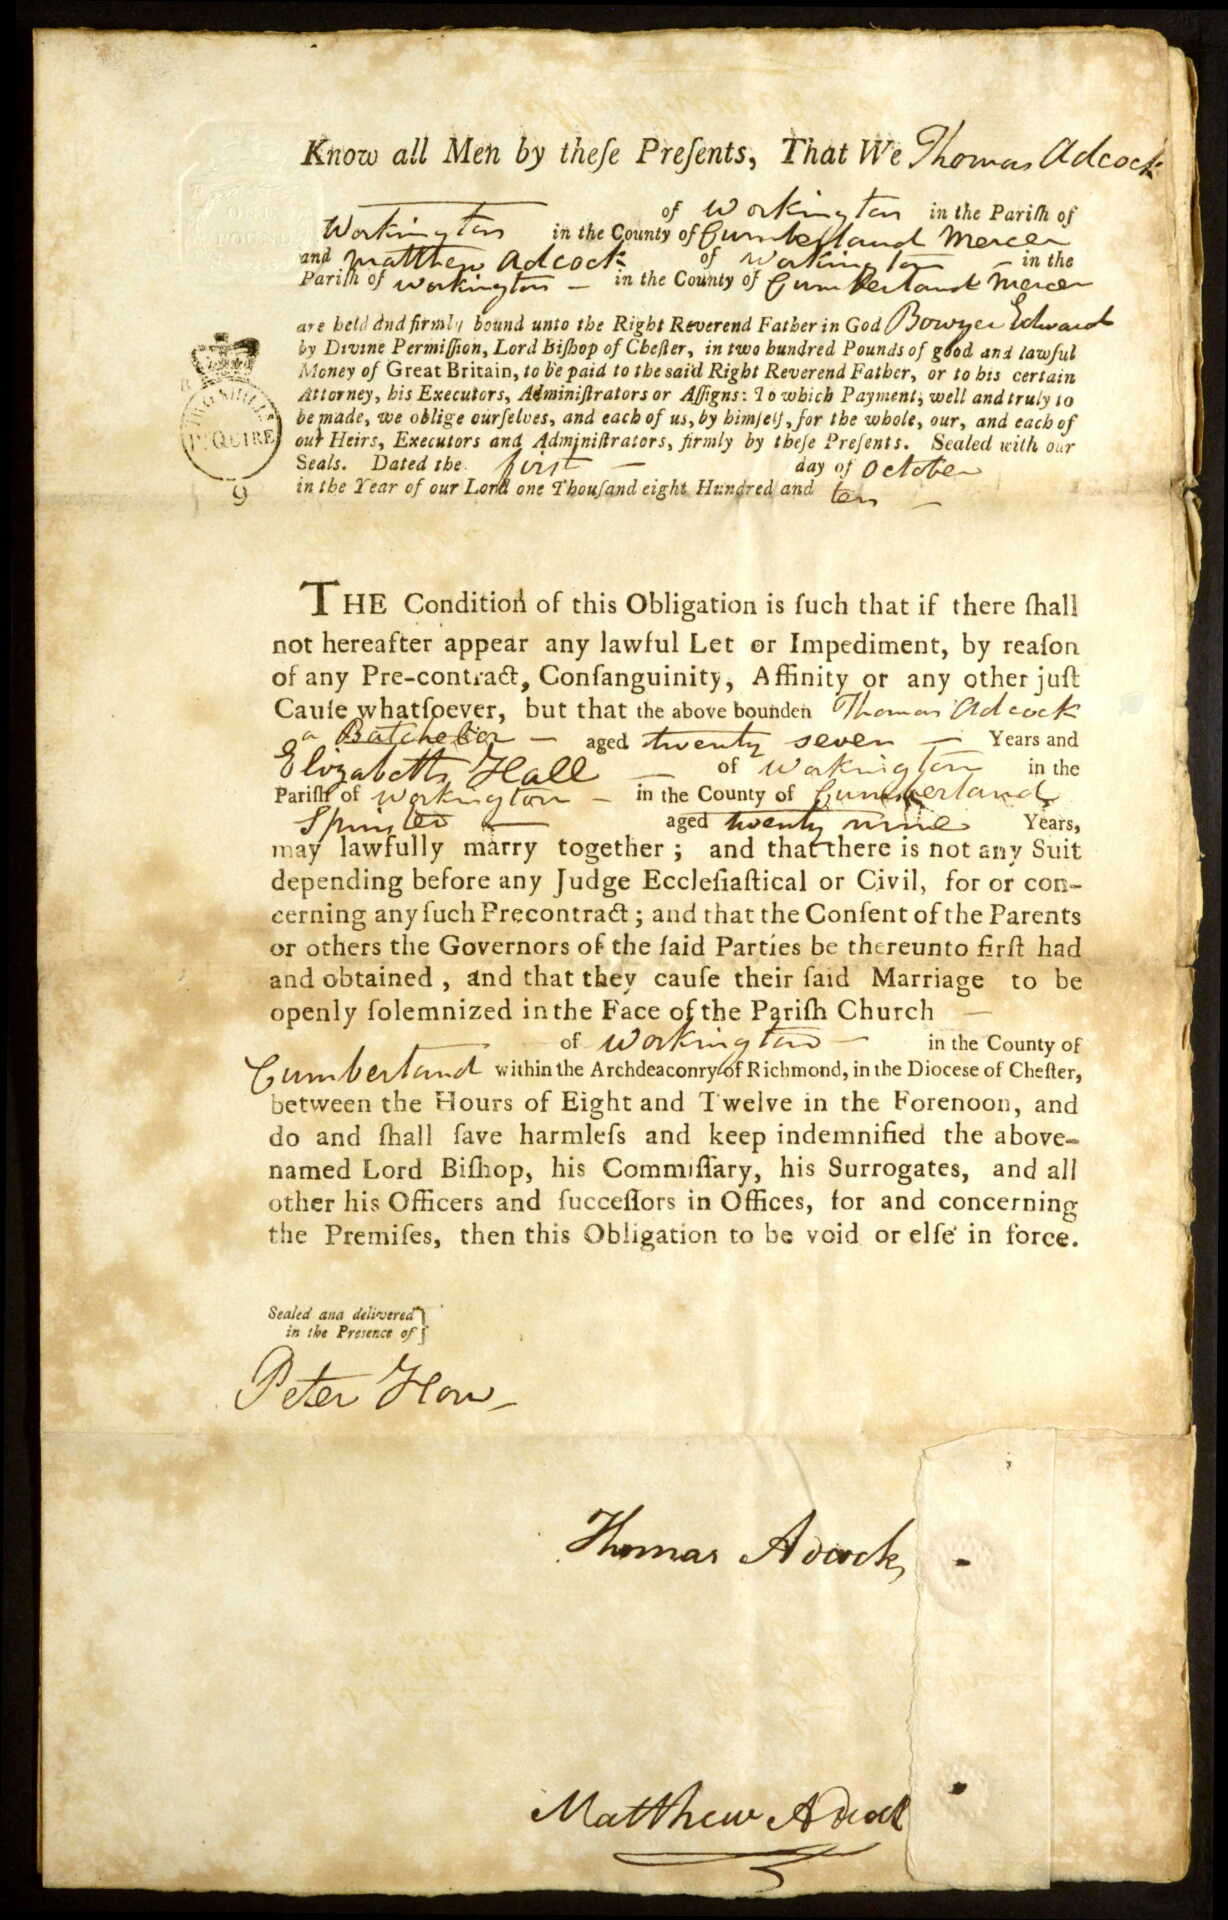 Know all Men by theſe Preſents, That We Thomas Adcock
of Workington in the Pariſh of
Workington in the County of Cumberland Mercer
and Matthew Adcock of Workington — in the
Pariſh of Workington — in the County of Cumberland Mercer
are held and firmly bound unto the Right Reverend Father in God Bowyer Edward
by Divine Permiſſion, Lord Biſhop of Cheſter, in two hundred Pounds of good and lawful
Money of Great Britain, to be paid to the said Right Reverend Father, or to his certain
Attorney, his Executors, Adminiſtrators or Aſſigns: To which Payment, well and truly to
be made, we oblige ourſelves, and each of us, by himſelf, for the whole, our, and each of
our Heirs, Executors and Adminiſtrators, firmly by theſe Preſents. Sealed with our
Seals. Dated the first — day of October
in the Year of our Lord one Thouſand eight Hundred and ten —
9
THE Condition of this Obligation is ſuch that if there ſhall
not hereafter appear any lawful Let or Impediment, by reaſon
of any Pre-contract, Conſanguinity, Affinity or any other juſt
Cauſe whatſoever, but that the above bounden Thomas Adcock
a Batchelor — aged twenty seven — Years and
Elizabeth Hall — of Workington in the
Pariſh of Workington — in the County of Cumberland
Spinster — aged twenty nine Years,
may lawfully marry together; and that there is not any Suit
depending before any Judge Eccleſiaſtical or Civil, for or con-
cerning any ſuch Precontract; and that the Conſent of the Parents
or others the Governors of the ſaid Parties be thereunto firſt had
and obtained, and that they cauſe their ſaid Marriage to be
openly ſolemnized in the Face of the Pariſh Church —
of Workington — in the County of
Cumberland within the Archdeaconry of Richmond, in the Dioceſe of Cheſter,
between the Hours of Eight and Twelve in the Forenoon, and
do and ſhall ſave harmleſs and keep indemnified the above-
named Lord Biſhop, his Commiſſary, his Surrogates, and all
other his Officers and ſucceſſors in Offices, for and concerning
the Premiſes, then this Obligation to be void or elſe in force.
Sealed and delivered
in the Presence of
Peter How
Thomas Adcock
Matthew Adcock